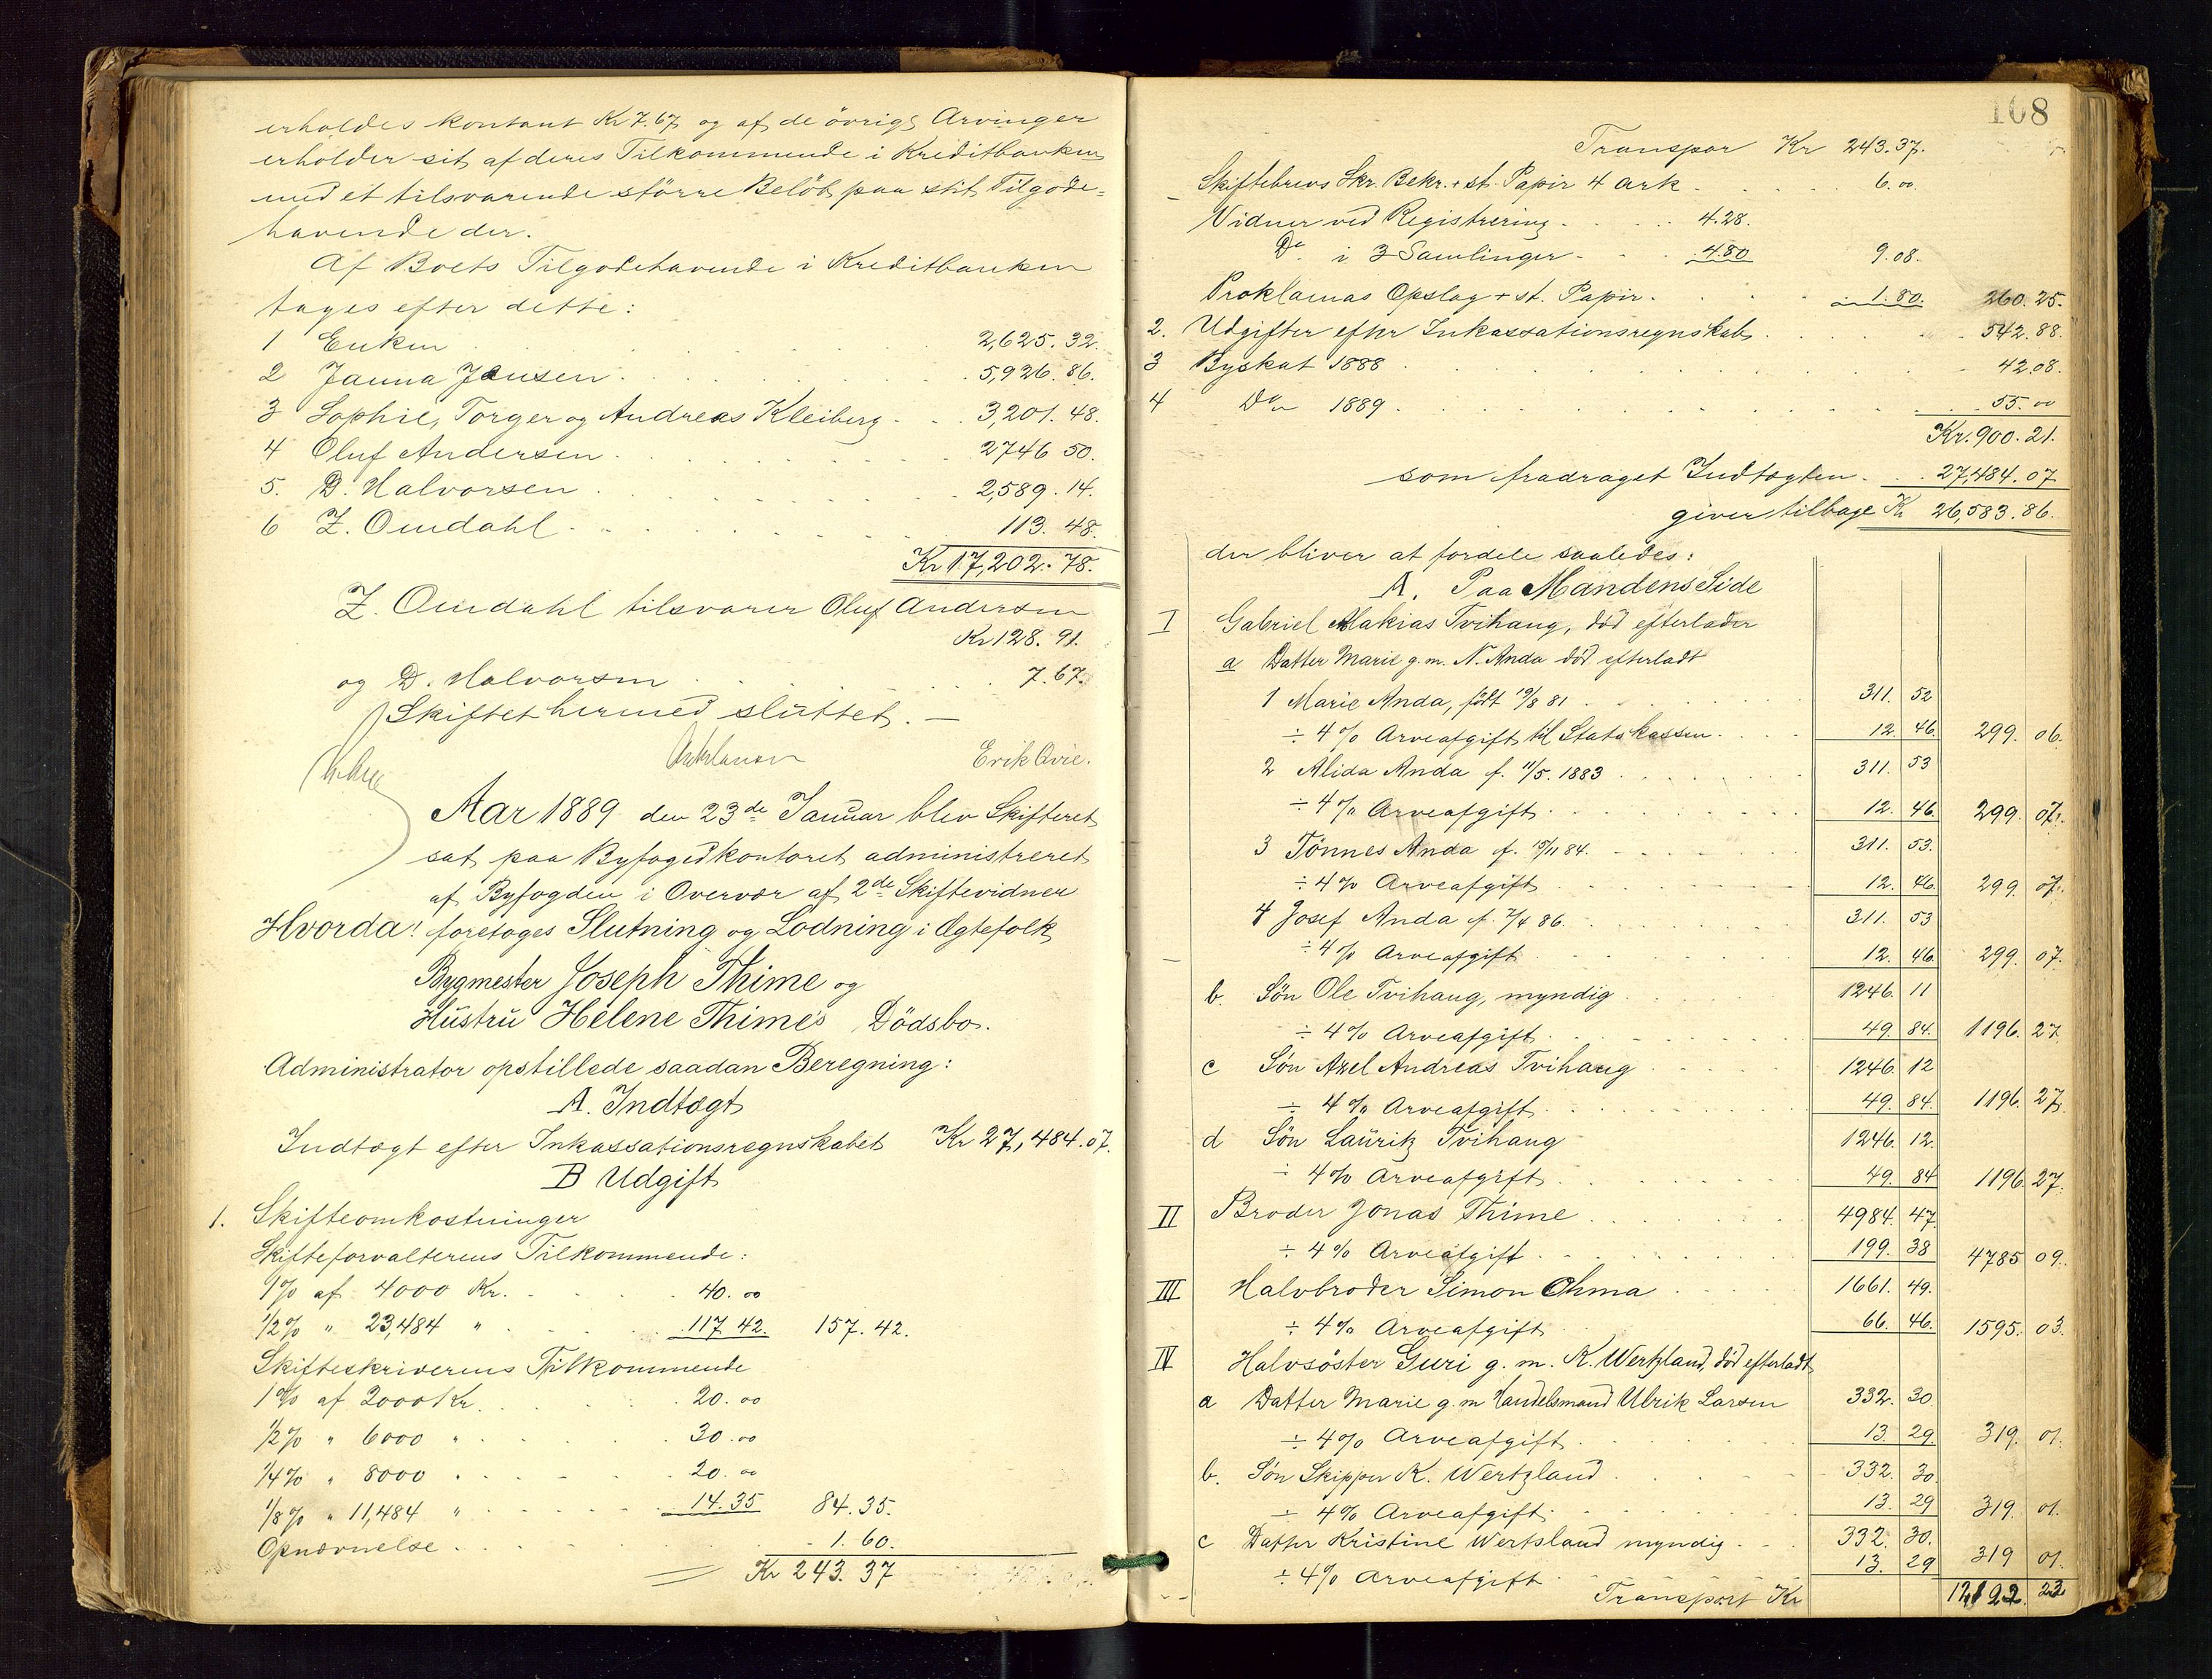 erholdes kontant Kr 7.67 og af de övrige Arvinger
erholder sit af deres Tilkommende i Kreditbanken
med et tilsvarende större Belöb paa sit Tilgode-
havende der.
Af Boets Tilgodehavende i Kreditbanken
tages efter dette:
1 Enken . . . 2,625.32.
2 Janna Jensen . . . 5,926.86.
3 Sophie, Torger og Andreas Kleiberg . . . 3,201.48.
4 Oluf Andersen . . . 2746 50.
5. D. Halvorsen . . . 2,589.14.
6 Z. Omdahl . . . 113.48.
Kr 17,202.78.
Z. Omdahl tilsvarer Oluf Andersen
Kr 128.91.
og D. Halvorsen . . . 7.67.
Skiftet hermed sluttet. —
Erik Qvie.
Aar 1889 den 23de Januar blev Skifteret
sat paa Byfogedkontoret administreret
af Byfogden i Overvær af 2de Skiftevidner
Hvorda! foretoges Slutning og Lodning i Ægtefolk
Bygmester Joseph Thime og
Hustru Helene Thime's Dödsbo.
Administrator opstillede saadan Beregning:
A. Indtægt
Indtægt efter Inkassationsregnskabet Kr 27,484.07.
B Udgift
1. Skifteomkostninger
Skifteforvalterens Tilkommende:
1% af 4000 Kr. . . . 40.00
1/2% " 23,484 " . . . 117 42. 157.42.
Skifteskriverens Tilkommende
1% af 2000 Kr. . . . 20.00
1/2% " 6000 " . . . 30.00
1/4% " 8000 " . . . 20.00
1/8% " 11,484 " . . . 14.35 84.35.
Opnævnelse . . . 1.60.
Kr 243.37
108
Transpor Kr 243.37.
Skiftebrevs Skr. Bekr. + st. Papir 4 Ark . . . 6.00.
Vidner ved Registrering . . . 4.28.
Do i 3 Samlinger . . . 4.80 9.08.
Proklamas Opslag + st. Papir . . . 1.80. 260.25.
2. Udgifter efter Inkassationsregnskab . . . 542.88.
3 Byskat 1888 . . . 42.08.
4 Do 1889 . . . 55.00
Kr. 900.21.
som fradraget Indtægten . . . 27,484.07
giver tilbage Kr 26,583.86.
der bliver at fordele saaledes:
A. Paa Mandens Side
I Gabriel Malakias Tvihaug, död efterlader
a Datter Marie g.m. N. Anda död efterladt
1 Marie Anda, född 19/8 81 . . . 311. 52
÷ 4% Arveafgift til Statskassen . . . 12. 46. 299. 06.
2 Alida Anda f. 11/5. 1883 . . . 311. 53
÷ 4% Arveafgift . . . 12. 46. 299. 07.
3 Tönnes Anda f. 15/11 84. . . . 311. 53.
÷ 4% Arveafgift . . . 12. 46. 299. 07.
4 Josef Anda f. 7/4 86. . . . 311. 53
÷ 4% Arveafgift . . . 12. 46 299. 07.
b. Sön Ole Tvihaug, myndig . . . 1246. 11
÷ 4% Arveafgift . . . 49. 84. 1196. 27
c Sön Axel Andreas Tvihaug . . . 1246. 12
÷ 4% Arveafgift . . . 49. 84. 1196. 27.
d Sön Lauritz Tvihaug 1246. 12.
÷ 4% Arveafgift . . . 49. 84 1196. 27.
II Broder Jonas Thime . . . 4984. 47
÷ 4% Arveafgift . . . 199. 38 4785 09.
III Halvbroder Simon Ohma . . . 1661. 49.
÷ 4% Arveafgift 66. 46. 1595. 03.
IV Halvsöster Guri g. m. K. Wertzland, död efterladt
a Datter Marie g. m Handelsmand Ulrik Larsen 332. 30
÷ 4% Arveafgift . . . 13. 29. 319. 01.
b. Sön Skipper K. Wertzland . . . 332. 30
÷ 4% Arveafgift . . . 13. 29 319. 01.
c Datter Kristine Wertsland myndig . . . 332. 30.
÷ 4% Arveafgift 13. 29 319 01.
Transport Kr 12,122. 23